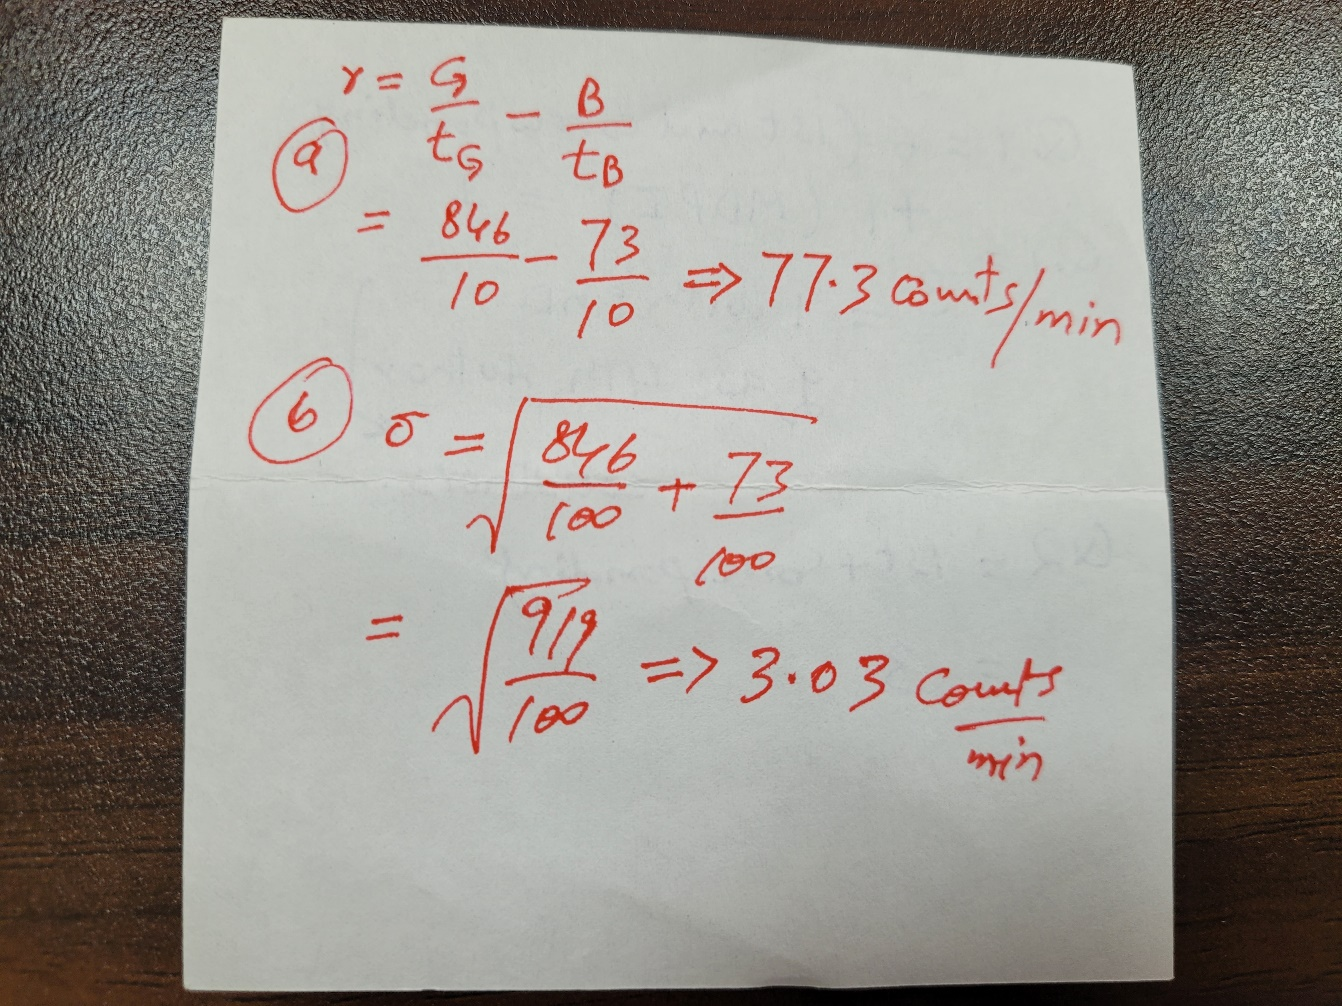 r = G/t_G - B/t_B
a
= 846/10 - 73/10 => 77.3 counts/min
b σ = √(846/100 + 73/100)
= √(919/100) => 3.03 counts/min